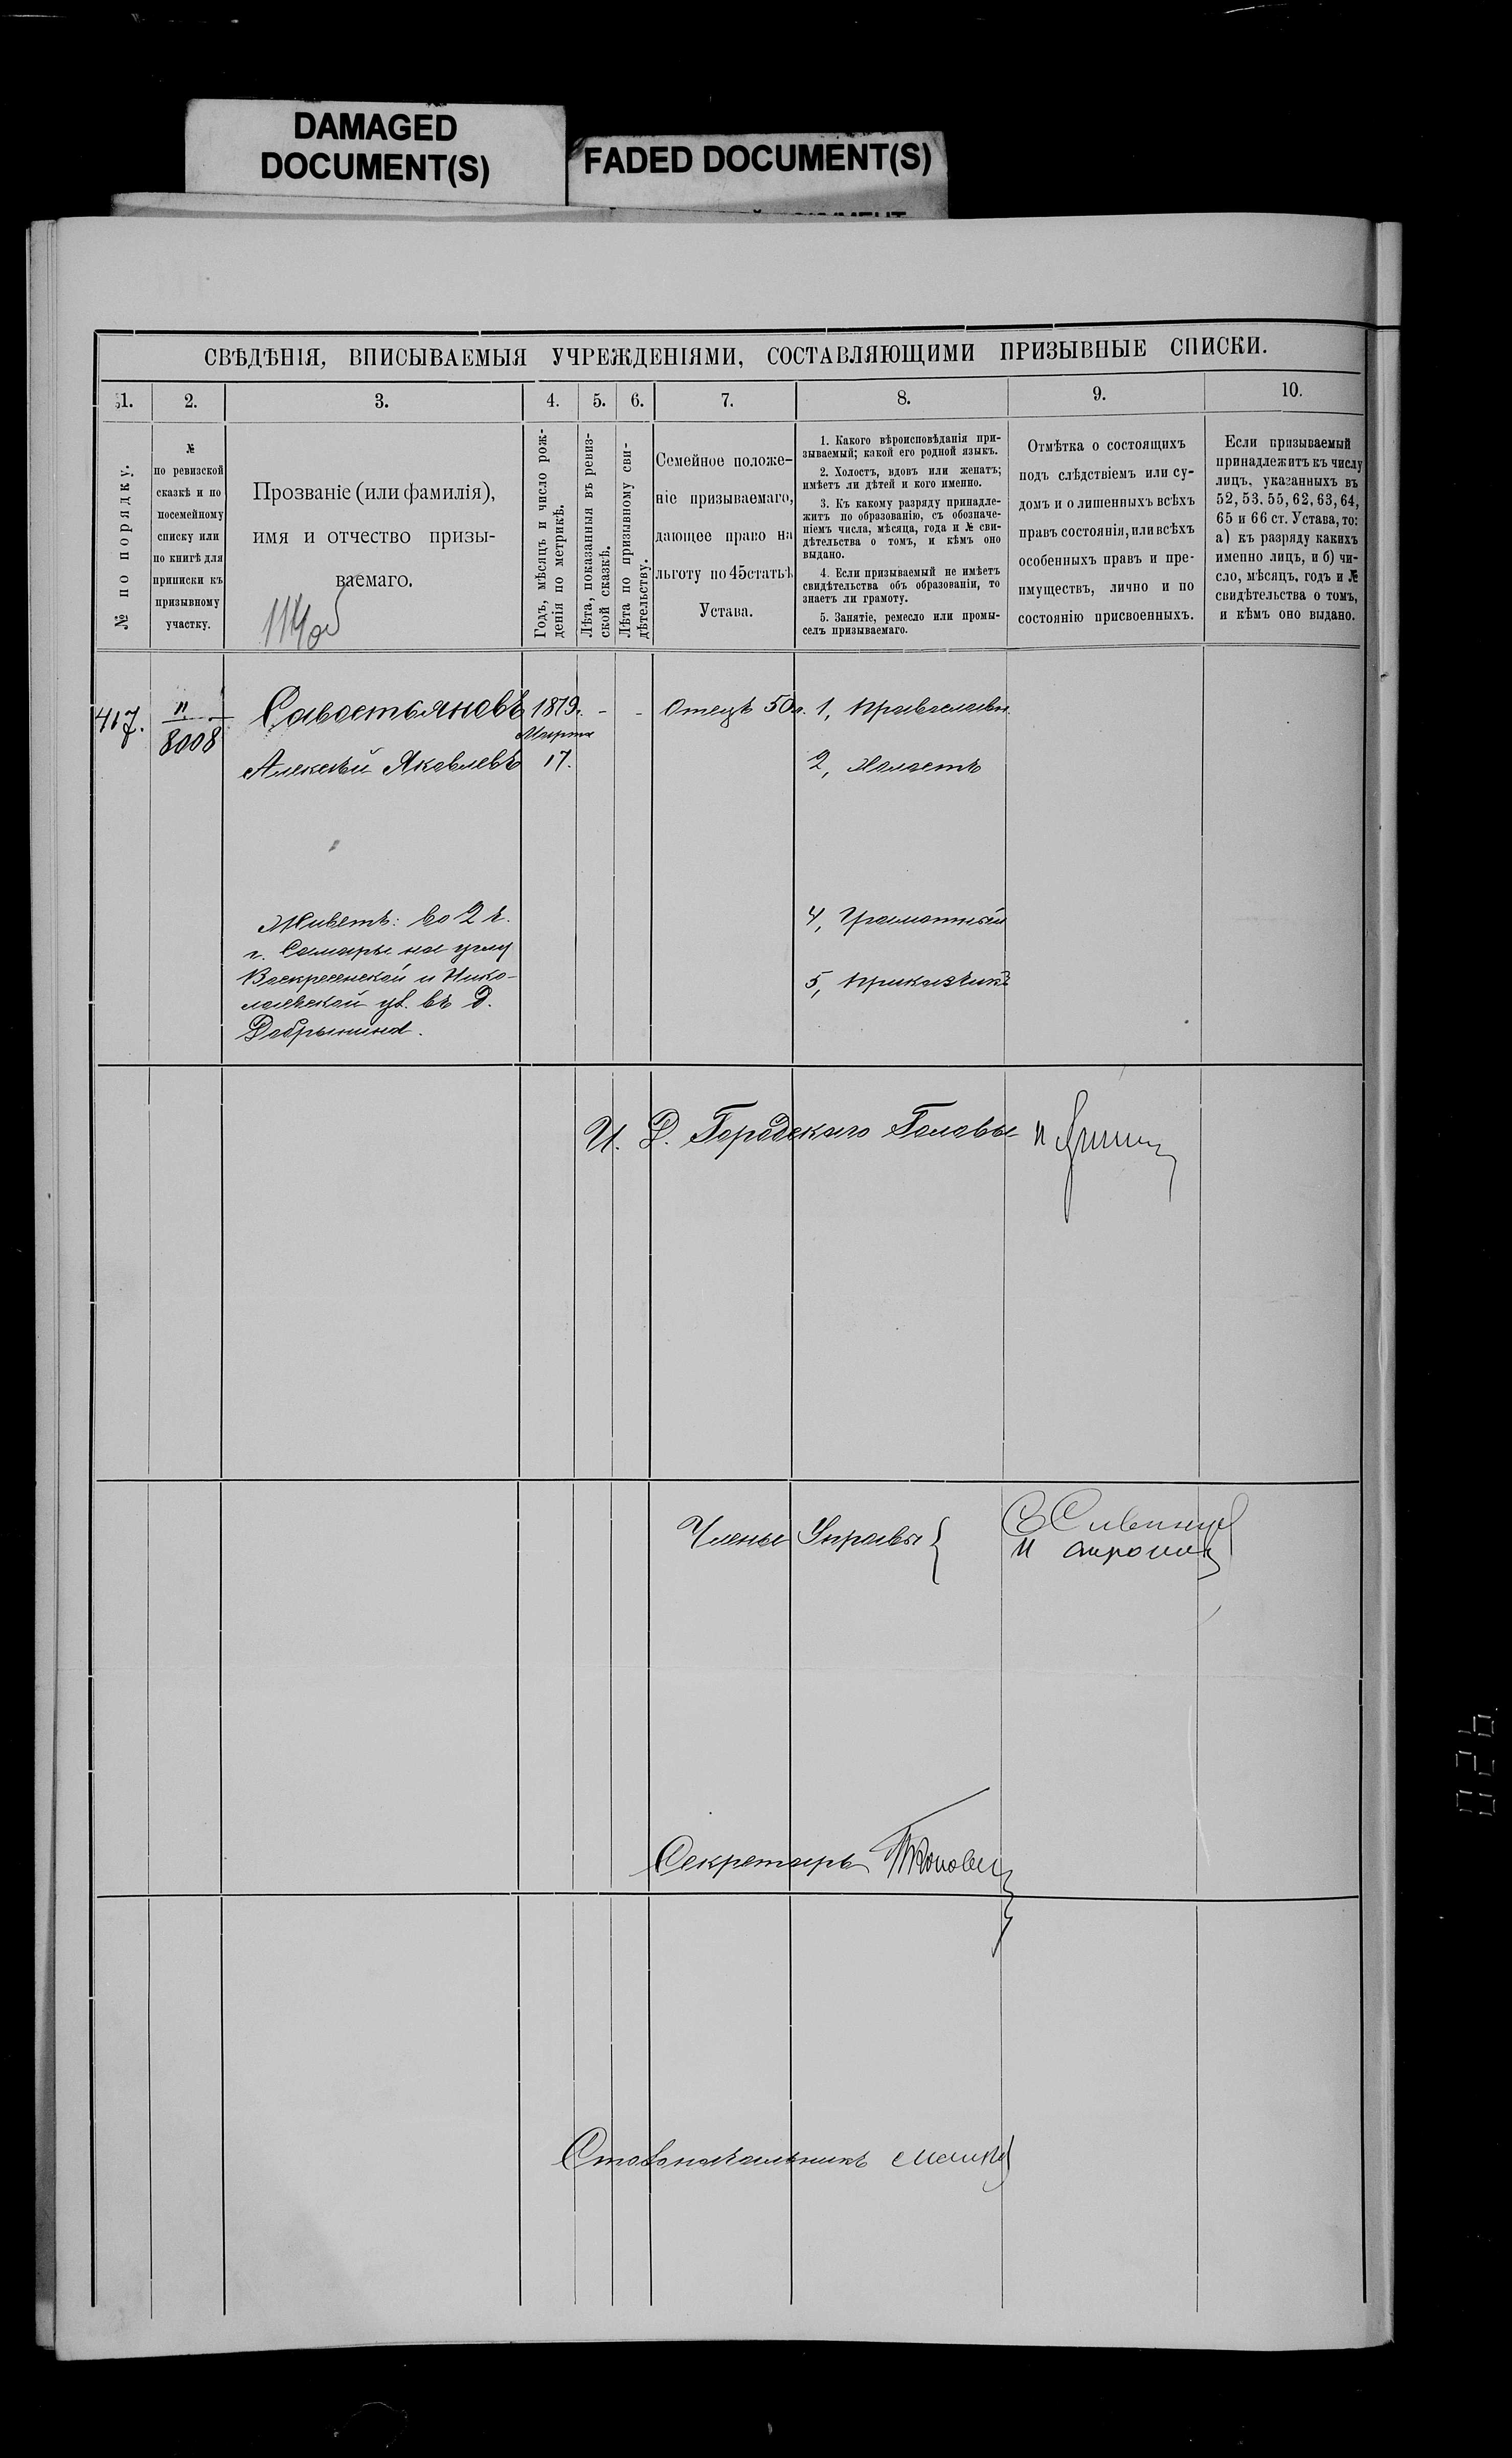 DAMAGED
DOCUMENT(S)
FADED DOCUMENT(S)
СВѢДѢНІЯ, ВПИСЫВАЕМЫЯ УЧРЕЖДЕНІЯМИ, СОСТАВЛЯЮЩИМИ ПРИЗЫВНЫЕ СПИСКИ.
1. 2. 3. 4. 5. 6. 7. 8. 9. 10.
№ по порядку.
№
по ревизской
сказкѣ и по
посемейному
списку или
по книгѣ для
приписки къ
призывному
участку.
Прозваніе (или фамилія),
имя и отчество призы-
ваемаго.
Годъ, мѣсяцъ и число рож-
денія по метрикѣ.
Лѣта, показанныя въ ревиз-
ской сказкѣ.
Лѣта по призывному сви-
дѣтельству.
Семейное положе-
ніе призываемаго,
дающее право на
льготу по 45 статьѣ
Устава.
1. Какого вѣроисповѣданія при-
зываемый; какой его родной языкъ.
2. Холостъ, вдовъ или женатъ;
имѣетъ ли дѣтей и кого именно.
3. Къ какому разряду принадле-
житъ по образованію, съ обозначе-
ніемъ числа, мѣсяца, года и № сви-
дѣтельства о томъ, и кѣмъ оно
выдано.
4. Если призываемый не имѣетъ
свидѣтельства объ образованіи, то
знаетъ ли грамоту.
5. Занятіе, ремесло или промы-
селъ призываемаго.
Отмѣтка о состоящихъ
подъ слѣдствіемъ или су-
домъ и о лишенныхъ всѣхъ
правъ состоянія, или всѣхъ
особенныхъ правъ и пре-
имуществъ, лично и по
состоянію присвоенныхъ.
Если призываемый
принадлежитъ къ числу
лицъ, указанныхъ въ
52, 53, 55, 62, 63, 64,
65 и 66 ст. Устава, то:
а) къ разряду какихъ
именно лицъ, и б) чи-
сло, мѣсяцъ, годъ и №
свидѣтельства о томъ,
и кѣмъ оно выдано.
417. 8008 Савостьяновъ 1879г. - - Отецъ 50л. 1, Православн.
Марта
Алексѣй Яковлевъ 17. 2, Холостъ
Живетъ: во 2 ч.
г. Самары на углу
Воскресенской и Нико-
лаевской ул. въ д.
Добрынина.
4, Грамотный
5, Приказчикъ
И. Д. Городскаго Головы
Члены Управы
Секретарь
Столоначальникъ
026